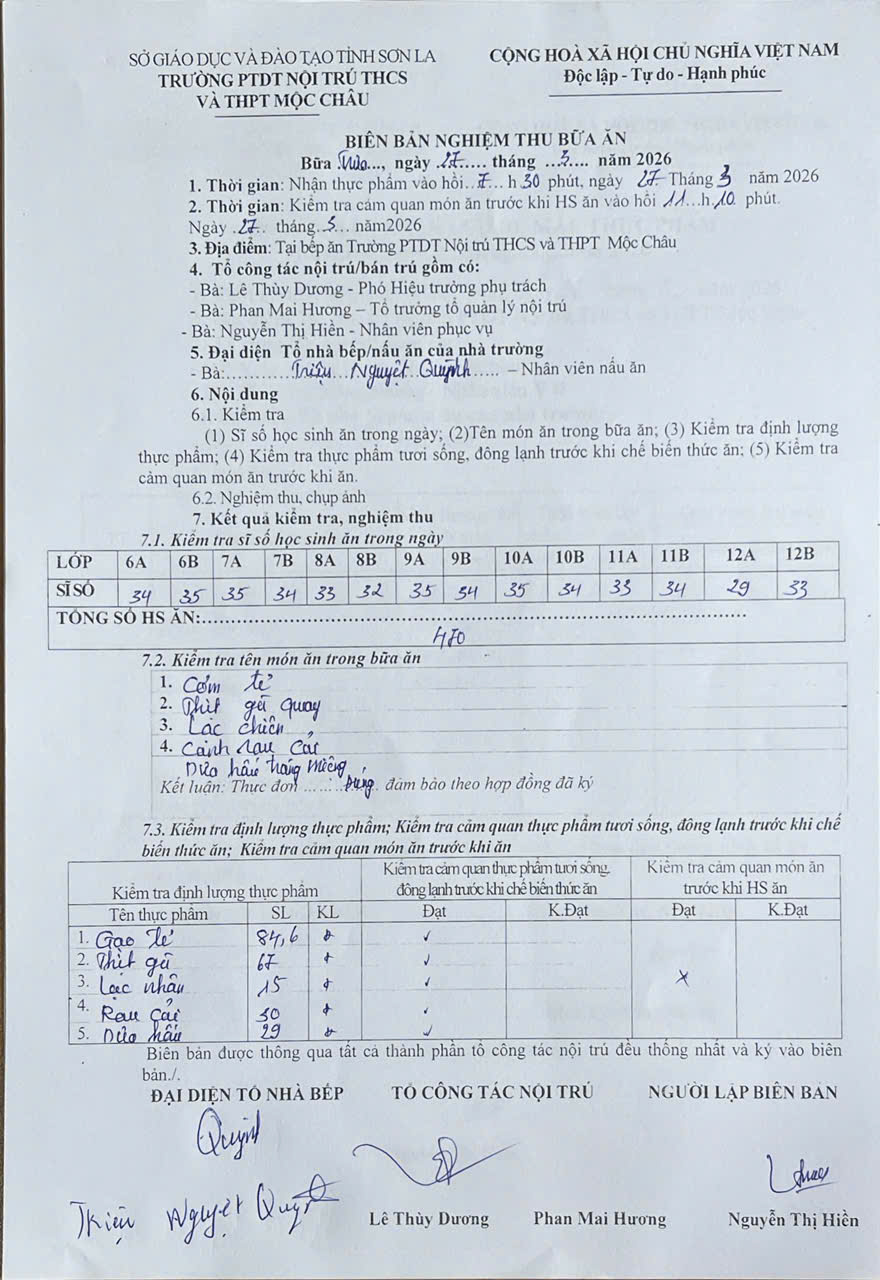 SỞ GIÁO DỤC VÀ ĐÀO TẠO TỈNH SƠN LA
TRƯỜNG PTDT NỘI TRÚ THCS
VÀ THPT MỘC CHÂU
CỘNG HOÀ XÃ HỘI CHỦ NGHĨA VIỆT NAM
Độc lập - Tự do - Hạnh phúc
BIÊN BẢN NGHIỆM THU BỮA ĂN
Bữa Trưa..., ngày .27..... tháng ...3.... năm 2026
1. Thời gian: Nhận thực phẩm vào hồi..7... h 30 phút, ngày 27 Tháng 3 năm 2026
2. Thời gian: Kiểm tra cảm quan món ăn trước khi HS ăn vào hồi 11...h.10. phút.
Ngày .27.. tháng..3... năm2026
3. Địa điểm: Tại bếp ăn Trường PTDT Nội trú THCS và THPT Mộc Châu
4. Tổ công tác nội trú/bán trú gồm có:
- Bà: Lê Thùy Dương - Phó Hiệu trưởng phụ trách
- Bà: Phan Mai Hương – Tổ trưởng tổ quản lý nội trú
- Bà: Nguyễn Thị Hiền - Nhân viên phục vụ
5. Đại diện Tổ nhà bếp/nấu ăn của nhà trường
- Bà:............Triệu...Nguyệt..Quỳnh...... – Nhân viên nấu ăn
6. Nội dung
6.1. Kiểm tra
(1) Sĩ số học sinh ăn trong ngày; (2)Tên món ăn trong bữa ăn; (3) Kiểm tra định lượng
thực phẩm; (4) Kiểm tra thực phẩm tươi sống, đông lạnh trước khi chế biến thức ăn; (5) Kiểm tra
cảm quan món ăn trước khi ăn.
6.2. Nghiệm thu, chụp ảnh
7. Kết quả kiểm tra, nghiệm thu
7.1. Kiểm tra sĩ số học sinh ăn trong ngày
LỚP 6A 6B 7A 7B 8A 8B 9A 9B 10A 10B 11A 11B 12A 12B
SĨ SỐ 34 35 35 34 33 32 35 34 35 34 33 34 29 33
TỔNG SỐ HS ĂN:.......................................................................................
470
7.2. Kiểm tra tên món ăn trong bữa ăn
1. Cơm tẻ
2. Thịt gà quay
3. Lạc chiên
4. Canh rau cải
Dưa hấu tráng miệng
Kết luận: Thực đơn ......Đúng. đảm bảo theo hợp đồng đã ký
7.3. Kiểm tra định lượng thực phẩm; Kiểm tra cảm quan thực phẩm tươi sống, đông lạnh trước khi chế
biến thức ăn; Kiểm tra cảm quan món ăn trước khi ăn
Kiểm tra định lượng thực phẩm
Kiểm tra cảm quan thực phẩm tươi sống,
đông lạnh trước khi chế biến thức ăn
Kiểm tra cảm quan món ăn
trước khi HS ăn
Tên thực phẩm SL KL Đạt K.Đạt Đạt K.Đạt
1. Gạo tẻ 84,6 ✓
2. Thịt gà 67 ✓
3. Lạc nhân 15 ✓ x
4. Rau cải 30 ✓
5. Dưa hấu 29 ✓
Biên bản được thông qua tất cả thành phần tổ công tác nội trú đều thống nhất và ký vào biên
bản./.
ĐẠI DIỆN TỔ NHÀ BẾP TỔ CÔNG TÁC NỘI TRÚ NGƯỜI LẬP BIÊN BẢN
Quỳnh
Triệu Nguyệt Quỳnh
Lê Thùy Dương Phan Mai Hương Nguyễn Thị Hiền